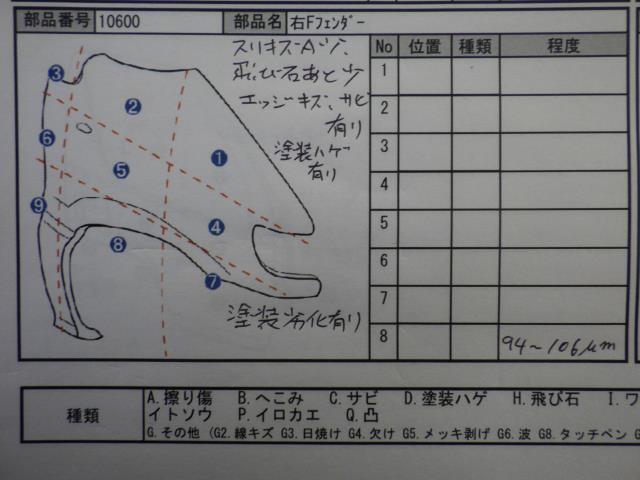 部品番号 10600 部品名 右Fフェンダー
スリキズA少、
飛び石あと少
エッジキズ、サビ
有り
塗装ハゲ
有り
塗装劣化有り
3
2
6
1
5
9
4
8
7
No 位置 種類 程度
1
2
3
4
5
6
7
8 94~106μm
種類
A.擦り傷 B.へこみ C.サビ D.塗装ハゲ H.飛び石 I.ワ
イトソウ P.イロカエ Q.凸
G.その他 (G2.線キズ G3.日焼け G4.欠け G5.メッキ剥げ G6.波 G8.タッチペン G